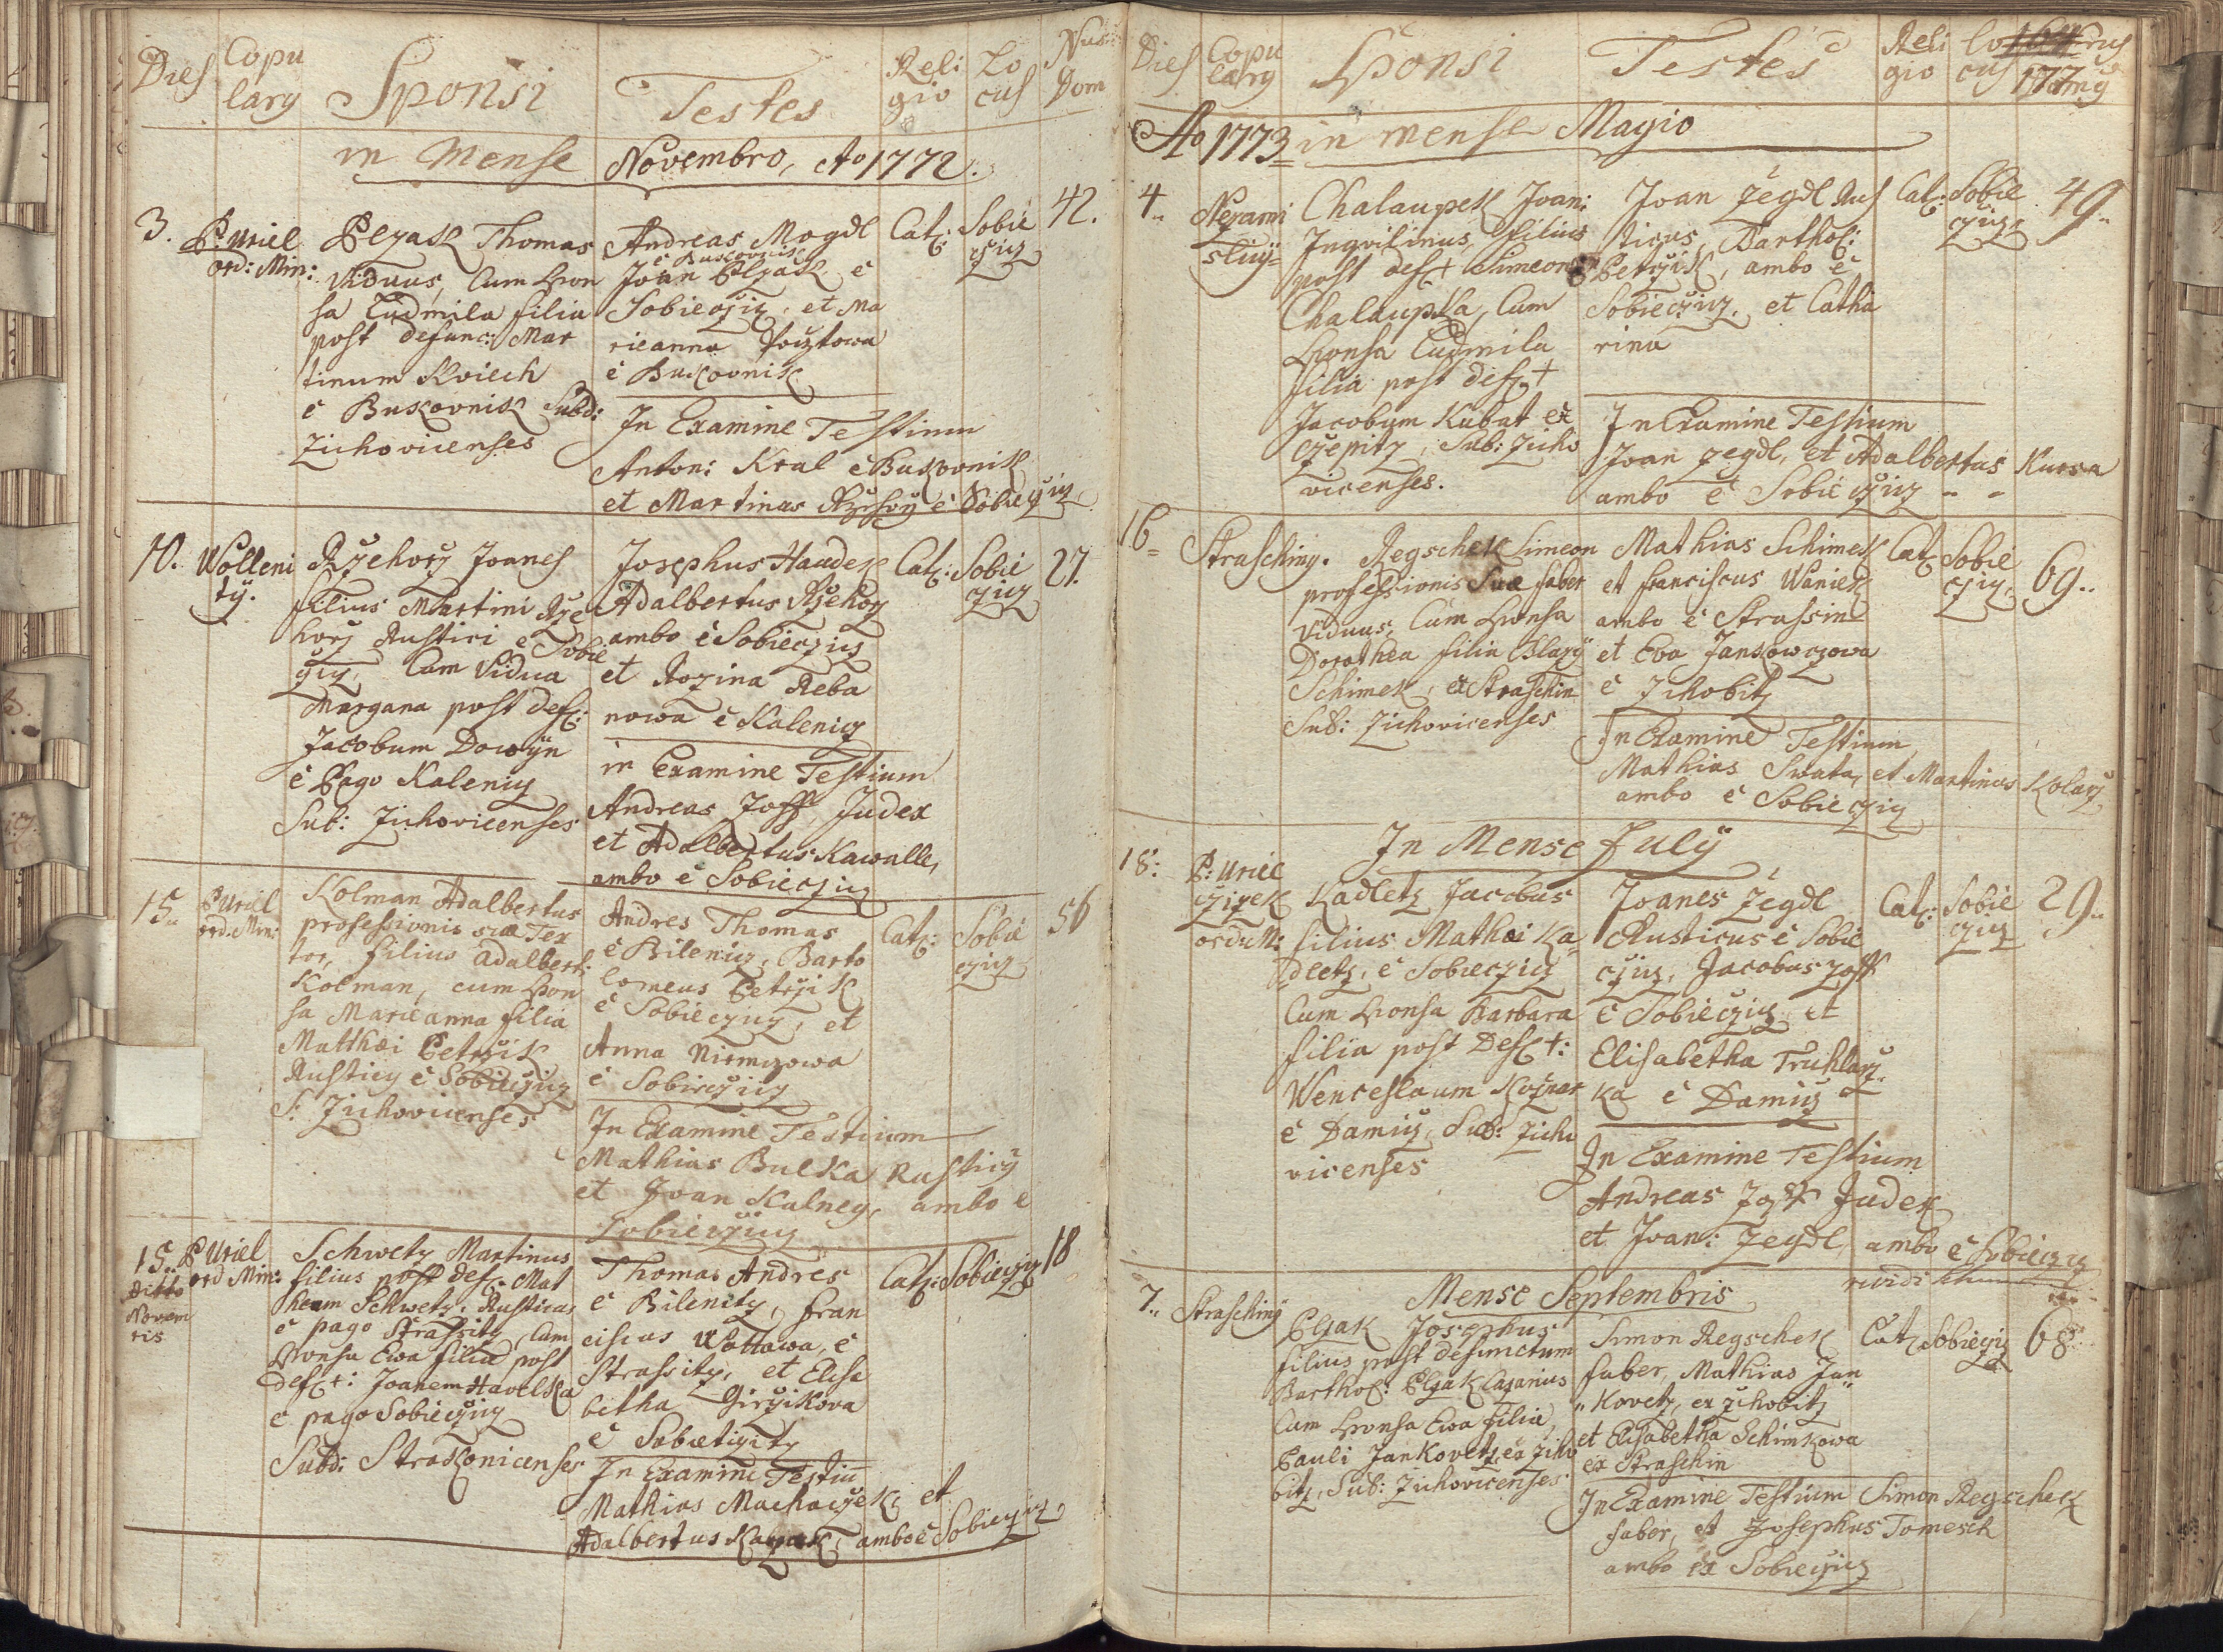 Dies Copu lary Sponsi Testes Reli gio Lo cus Nus Dom
in Mense Novembro, Ao 1772.
3. P: Uriel ord: Min:
Plzak Thomas
Viduus, Cum Spon
sa Ludmila filia
post defunc: Mar
tinum Kviech
è Bukovnik Subd:
Zichovicenses
Andreas Mogdl
è Bukovnik
Joan Plzak è
Sobieczicz, et Ma
rieanna
è Bukovnik
Cat: Sobie czicz 42.
In Examine Testium
Anton: Kral è Bukovnik
et Martinus è Sobieczicz
10. Wolleni ty.
Rzehorz Joanes
filius Martini Rze
horz Rustici è Sobie
czicz, Cum Vidua
Margana post def:
Jacobum Dowÿn
è Pago Kalenicz
Sub: Zichovicenses
Josephus Haudek
Adalbertus Rzehorz
ambo è Sobieczicz
et Rozina Reba
nowa è Kalenicz
Cat: Sobie czicz 27.
in Examine Testium
Andreas Zoff, Judex
et Adalbertus Kawalle,
ambo è Sobieczicz
15. P Uriel ord: Min:
Kolman Adalbertus
professionis suæ Tex
tor, filius Adalberti
Kolman, cum Spon
sa Marieanna filia
Matthæi Petrzik
Rusticÿ è Sobieczicz
S: Zichovicenses
Andres Thomas
è Bilenicz, Barto
lomeus Petrzik
è Sobieczicz, et
Anna Niemczowa
è Sobieczicz
Cat: Sobie czicz 56
In Examine Testium
Mathias Bulka Rusticÿ
et Joan Kalneÿ, ambo è
Sobieczicz
15. Ditto Novem ris P Uriel ord Min:
Schwetz Martinus
filius post def: Mat
heum Schwetz, Rusticus
è pago Strassitz, Cum
Sponsa Ewa filia post
def: +: Joanem Havelka
è pago Sobieczicz
Subd: Strakonicenses
Thomas Andres
è Bilenitz, fran
ciscus Wottawa, è
Strassitz, et Elisa
betha Girzikova
è Sobietizitz
Cat: Sobieczicz 18
In Examine Testiu
Mathias Machaczek, et
Adalbertus ambo è Sobieczicz
Dies Copu lary Sponsi Testes Reli gio Lo cus
Ao 1773 in mense Magio
4. Nezami sliczÿ
Chalaupek Joan:
Inqvilinus, filius
post def + Simeon
Chalaupka, Cum
Sponsa Ludmila
filia post def: +
Jacobum Kubat ex
Czepitz, Sub: Zicho
vicenses.
Joan Zegdl Rus
ticus, Barthol:
Petrzik, ambo è
Sobieczicz, et Catha
rina
Cat: Sobie czicz 49.
In Examine Testium
Joan Zegdl, et Adalbertus Kursa
ambo è Sobieczicz
16 Straschinÿ.
Regschek Simeon
professionis Suæ faber
Viduus, Cum Sponsa
Dorothea filia Blasÿ
Schimek, ex Straschin
Sub: Zichovicenses
Mathias Schimek
et franciscus Waniek
ambo è Strassin
et Eva Jankowczowa
è Zichobitz
Cat: Sobie czicz, 69.
In Examine Testium
Mathias Swata, et Martinus Kolarz
ambo è Sobieczicz
In Mense Julÿ
18: P: Uriel Czizek ord: M:
Kadletz Jacobus
filius Mathæi Ka
dletz, è Sobieczicz
Cum Sponsa Barbara
filia post Def +:
Wenceslaum
è Damicz, Sub: Zicho
vicenses
Joanes Zegdl
Rusticus è Sobie
czicz, Jacobus Zoff
è Sobieczicz et
Elisabetha Truhlarz
ka è Damicz
Cat: Sobie czicz 29.
In Examine Testium
Andreas Zoff Judex
et Joan: Zegdl, ambo è Sobieczicz
Mense Septembris
vidi
7. Straschinÿ
Plzak Josephus
filius post defunctum
Barthol: Plzak Casarius
Cum Sponsa Ewa filia
Pauli Jankovetz, ex Zicho
bitz, Sub: Zichovicenses
Simon Regschek
faber, Mathias Jan
kovetz, ex Zichobitz
et Elisabetha Schimkowa
ex Straschin
Cat: Sobieczicz 68.
In Examine Testium Simon Regschek
faber, et Josephus Tomesch
ambo ex Sobieczicz